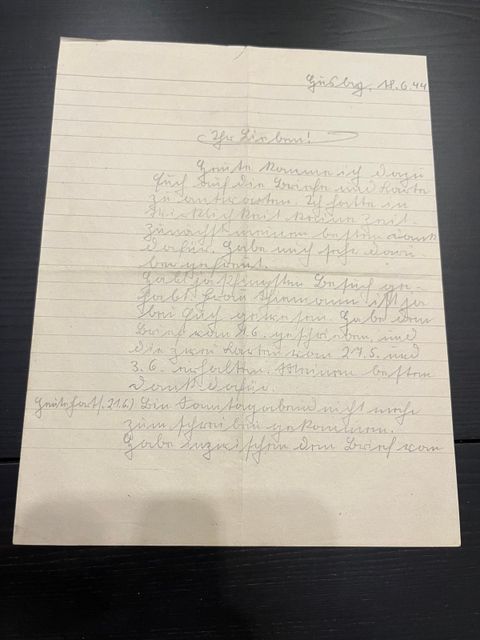 Gusbg. 18.6.44
Ihr Lieben!
Heute komme ich dazu
Euch auf die Briefe und Karte
zu antworten. Ich hatte in
Wirklichkeit keine Zeit.
Zunächst meinen besten Dank
dafür. Habe mich sehr darü-
ber gefreut.
Habt ja Pfingsten Besuch ge-
habt. Frau Thiemann ist ja
bei Euch gewesen. Habe den
Brief vom 9.6. geschrieben, und
die zwei Karten vom 27.5. und
3.6. erhalten. Meinen besten
Dank dafür.
(21.6.) Bin Sonntagabend nicht mehr
zum schreiben gekommen.
Habe inzwischen den Brief vom